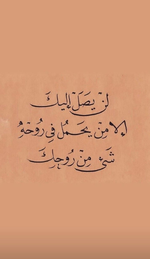 لنْ يصَلَ إليكَ
إلا منْ يحَملُ في رُوحْهِ
شَيٌ منِ رُوحِكَ